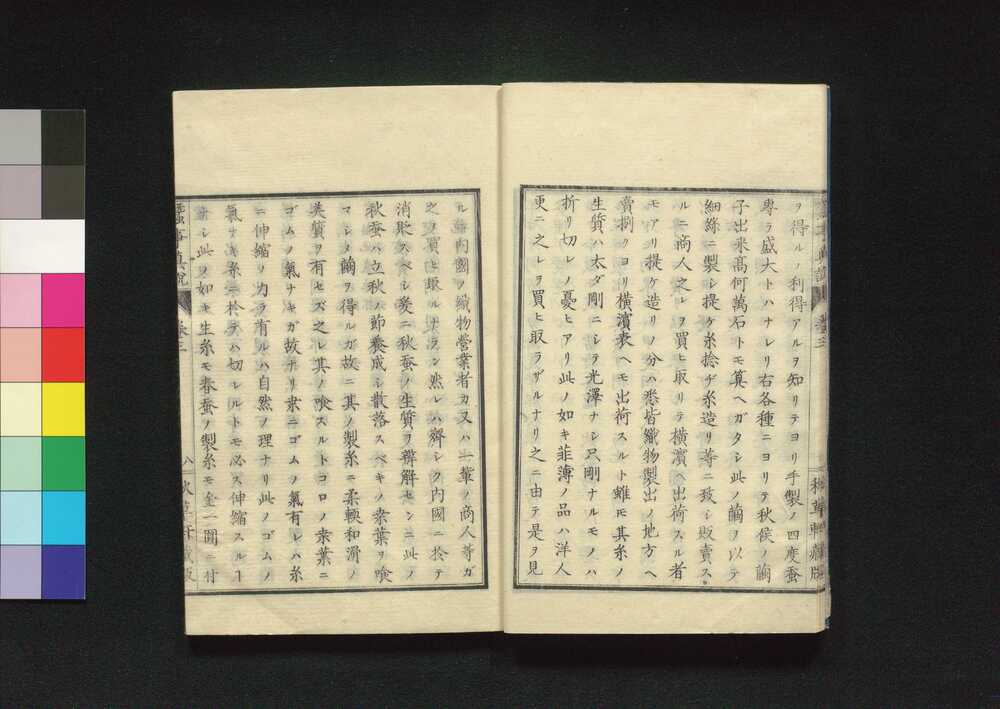 ヲ得ルノ利得アルヲ知リテヨリ手製ノ四度蚕
專ラ盛大トハナレリ右各種ニヨリテ秋侯ノ繭
子出来髙何萬石トモ算ヘガタシ此ノ繭ヲ以テ
細絲ニ製シ提ケ糸捻ヂ糸造リ等ニ致シ販賣ス
ルニ商人之レヲ買ヒ取リテ横濱ヘ出荷スル者
モアリ提ケ造リノ分ハ悉皆織物製出ノ地方ヘ
賣捌クヨリ横濱表ヘモ出荷スルト雖モ其糸ノ
生質ハ太ダ剛ニシテ光澤ナシ只剛ナルモノハ
折リ切レノ憂ヒアリ此ノ如キ菲薄ノ品ハ洋人
更ニ之レヲ買ヒ取ラザルナリ之ニ由テ是ヲ見
ル時内國ヲ織物營業者カ又ハ一輩ノ商人等ガ
之ヲ買ヒ取ルナラン然レハ齊シク内國ニ於テ
消耗スベシ爰ニ秋蚕ノ生質ヲ辨解センニ此ノ
秋蚕ハ立秋ノ節養成シ散落スベキノ桒葉ヲ喰
マシメ繭ヲ得ルガ故ニ其ノ製糸ニ柔軟和滑ノ
美質ヲ有セズ之レ其ノ喰スルトコロノ桒葉ニ
ゴムノ氣ナキガ故ナリ桒ニゴムノ氣有レハ糸
ニ伸縮リ力ラ有ルハ自然ノ理ナリ此ノゴムノ
氣ナキ糸ニ於テハ切レルトモ必ス伸縮スルヿ
ナシ此ノ如キ生糸モ春蚕ノ製糸モ全一圓ニ付
蠶事眞説
卷三
八